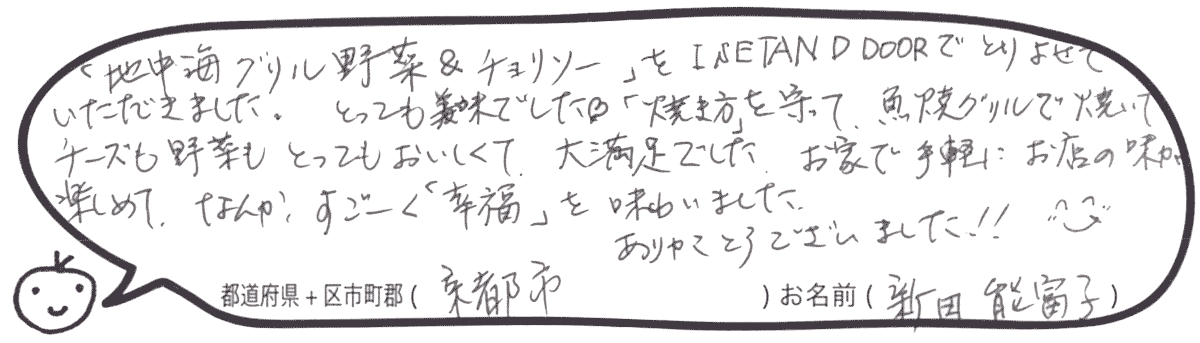 「地中海グリル野菜&チョリソー」をISETAN DOORでとりよせて
いただきました。とっても美味でした「焼き方」を守って、魚焼グリルで焼いて
チーズも野菜もとってもおいしくて、大満足でした。お家で手軽にお店の味が
楽しめて、なんか、すごーく「幸福」を味わいました。
ありがとうございました!!
都道府県+区市町郡(京都市)お名前(新田 能富子)